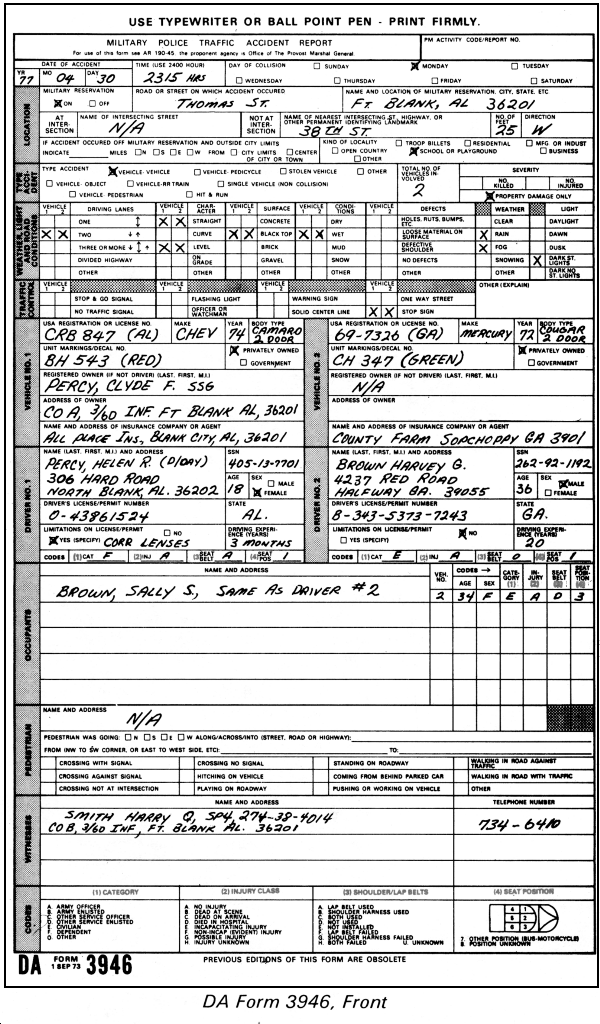 USE TYPEWRITER OR BALL POINT PEN - PRINT FIRMLY.
MILITARY POLICE TRAFFIC ACCIDENT REPORT
For use of this form see AR 190-45. the proponent agency is Office of The Provost Marshal General.
PM ACTIVITY CODE/REPORT NO.
DATE OF ACCIDENT
YR 77 MO 04 DAY 30
TIME (USE 2400 HOUR)
2315 HRS
DAY OF COLLISION
SUNDAY MONDAY TUESDAY
WEDNESDAY THURSDAY FRIDAY SATURDAY
LOCATION
MILITARY RESERVATION
ON OFF
ROAD OR STREET ON WHICH ACCIDENT OCCURED
THOMAS ST.
NAME AND LOCATION OF MILITARY RESERVATION, CITY, STATE, ETC
FT. BLANK, AL 36201
AT INTER-SECTION
NAME OF INTERSECTING STREET
N/A
NOT AT INTER-SECTION
NAME OF NEAREST INTERSECTING ST, HIGHWAY, OR OTHER PERMANENT IDENTIFYING LANDMARK
38TH ST.
NO. OF FEET
25
DIRECTION
W
IF ACCIDENT OCCURED OFF MILITARY RESERVATION AND OUTSIDE CITY LIMITS
INDICATE MILES N S E W FROM CITY LIMITS CENTER OF CITY OR TOWN
KIND OF LOCALITY
OPEN COUNTRY OTHER
TROOP BILLETS RESIDENTIAL MFG OR INDUST
SCHOOL OR PLAYGROUND BUSINESS
TYPE ACCI-DENT
TYPE ACCIDENT VEHICLE- VEHICLE VEHICLE- PEDICYCLE STOLEN VEHICLE OTHER
VEHICLE- OBJECT VEHICLE-RR TRAIN SINGLE VEHICLE (NON COLLISION)
VEHICLE PEDESTRIAN HIT & RUN
TOTAL NO. OF VEHICLES IN-VOLVED
2
SEVERITY
NO. KILLED NO. INJURED
PROPERTY DAMAGE ONLY
WEATHER LIGHT AND ROAD CONDITIONS
VEHICLE 1 2 DRIVING LANES VEHICLE 1 2 CHAR-ACTER VEHICLE 1 2 SURFACE VEHICLE 1 2 CONDI-TIONS VEHICLE 1 2 DEFECTS WEATHER LIGHT
ONE STRAIGHT CONCRETE DRY HOLES, RUTS, BUMPS, ETC. CLEAR DAYLIGHT
X X TWO CURVE X X BLACK TOP X X WET LOOSE MATERIAL ON SURFACE X RAIN DAWN
THREE OR MORE X X LEVEL BRICK MUD DEFECTIVE SHOULDER X FOG DUSK
DIVIDED HIGHWAY ON GRADE GRAVEL SNOW NO DEFECTS SNOWING X DARK ST. LIGHTS
OTHER OTHER OTHER OTHER OTHER OTHER DARK NO ST. LIGHTS
TRAFFIC CONTROL
VEHICLE 1 2 VEHICLE 1 2 VEHICLE 1 2 VEHICLE 1 2 OTHER (EXPLAIN)
STOP & GO SIGNAL FLASHING LIGHT WARNING SIGN ONE WAY STREET
NO TRAFFIC SIGNAL OFFICER OR WATCHMAN SOLID CENTER LINE X X STOP SIGN
VEHICLE NO. 1
USA REGISTRATION OR LICENSE NO. MAKE YEAR BODY TYPE
CRB 847 (AL) CHEV 74 CAMARO 2 DOOR
UNIT MARKINGS/DECAL NO.
BH 543 (RED)
PRIVATELY OWNED
GOVERNMENT
REGISTERED OWNER (IF NOT DRIVER) (LAST, FIRST, M.I.)
PERCY, CLYDE F. SSG
ADDRESS OF OWNER
CO A, 3/60 INF FT BLANK AL, 36201
NAME AND ADDRESS OF INSURANCE COMPANY OR AGENT
ALL PLACE INS., BLANK CITY, AL, 36201
VEHICLE NO. 2
USA REGISTRATION OR LICENSE NO. MAKE YEAR BODY TYPE
69-7326 (GA) MERCURY 72 COUGAR 2 DOOR
UNIT MARKINGS/DECAL NO.
CH 347 (GREEN)
PRIVATELY OWNED
GOVERNMENT
REGISTERED OWNER (IF NOT DRIVER) (LAST, FIRST, M.I.)
N/A
ADDRESS OF OWNER
NAME AND ADDRESS OF INSURANCE COMPANY OR AGENT
COUNTY FARM SOPCHOPPY GA 3901
DRIVER NO. 1
NAME (LAST, FIRST, M.I.) AND ADDRESS SSN
PERCY, HELEN R. (D/DAY) 405-13-7701
306 HARD ROAD
NORTH BLANK, AL. 36202
AGE 18 SEX MALE FEMALE
DRIVER'S LICENSE/PERMIT NUMBER STATE
0-43861524 AL.
LIMITATIONS ON LICENSE/PERMIT NO
YES (SPECIFY) CORR LENSES
DRIVING EXPERI-ENCE (YEARS)
3 MONTHS
CODES (1) CAT F (2) INJ A (3) SEAT BELT A (4) SEAT POS 1
DRIVER NO. 2
NAME (LAST, FIRST, M.I.) AND ADDRESS SSN
BROWN HARVEY G. 262-92-1192
4237 RED ROAD
HALFWAY GA. 39055
AGE 36 SEX MALE FEMALE
DRIVER'S LICENSE/PERMIT NUMBER STATE
B-343-5373-7243 GA.
LIMITATIONS ON LICENSE/PERMIT NO
YES (SPECIFY)
DRIVING EXPERI-ENCE (YEARS)
20
CODES (1) CAT E (2) INJ A (3) SEAT BELT D (4) SEAT POS 1
OCCUPANTS
NAME AND ADDRESS VEH. NO. CODES → AGE SEX CATE-GORY (1) IN-JURY (2) SEAT BELT (3) SEAT POSI-TION (4)
BROWN, SALLY S., SAME AS DRIVER #2 2 34 F E A D 3
PEDESTRIAN
NAME AND ADDRESS
N/A
PEDESTRIAN WAS GOING: N S E W ALONG/ACROSS/INTO (STREET, ROAD OR HIGHWAY):
FROM (NW TO SW CORNER, OR EAST TO WEST SIDE, ETC): TO:
CROSSING WITH SIGNAL CROSSING NO SIGNAL STANDING ON ROADWAY WALKING IN ROAD AGAINST TRAFFIC
CROSSING AGAINST SIGNAL HITCHING ON VEHICLE COMING FROM BEHIND PARKED CAR WALKING IN ROAD WITH TRAFFIC
CROSSING NOT AT INTERSECTION PLAYING ON ROADWAY PUSHING OR WORKING ON VEHICLE OTHER
WITNESSES
NAME AND ADDRESS TELEPHONE NUMBER
SMITH HARRY Q, SP4, 274-38-4014
CO B, 3/60 INF, FT. BLANK AL. 36201 734-6410
CODES
(1) CATEGORY
A. ARMY OFFICER
B. ARMY ENLISTED
C. OTHER SERVICE OFFICER
D. OTHER SERVICE ENLISTED
E. CIVILIAN
F. DEPENDENT
G. OTHER
(2) INJURY CLASS
A. NO INJURY
B. DEAD AT SCENE
C. DEAD ON ARRIVAL
D. DIED IN HOSPITAL
E. INCAPACITATING INJURY
F. NON-INCAP (EVIDENT) INJURY
G. POSSIBLE INJURY
H. INJURY UNKNOWN
(3) SHOULDER/LAP BELTS
A. LAP BELT USED
B. SHOULDER HARNESS USED
C. BOTH USED
D. NOT USED
E. NOT INSTALLED
F. LAP BELT FAILED
G. SHOULDER HARNESS FAILED
H. BOTH FAILED U. UNKNOWN
(4) SEAT POSITION
4 1
5 2
6 3
7. OTHER POSITION (BUS-MOTORCYCLE)
8. POSITION UNKNOWN
DA FORM 1 SEP 73 3946 PREVIOUS EDITIONS OF THIS FORM ARE OBSOLETE
DA Form 3946, Front